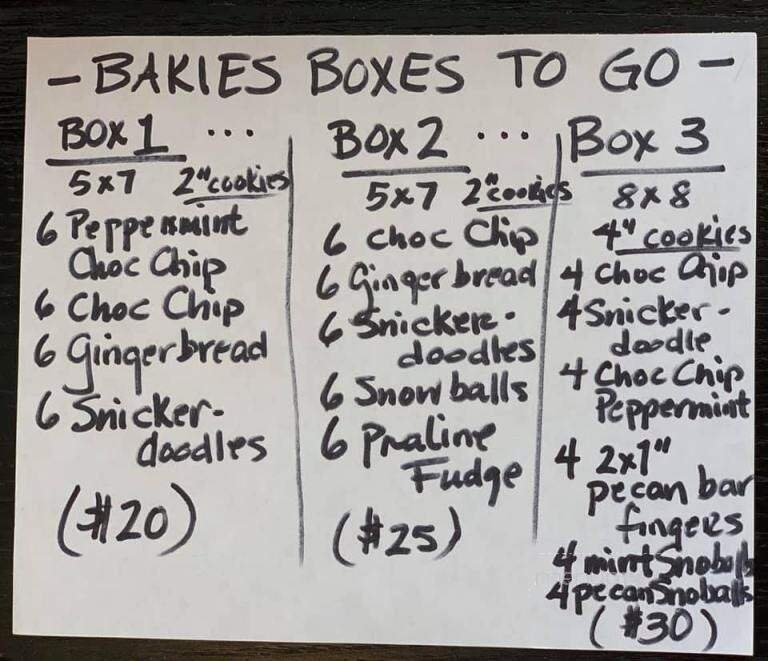 - BAKIES BOXES TO GO -
BOX 1 ...
5x7 2" cookies
6 Peppermint
Choc Chip
6 Choc Chip
6 Gingerbread
6 Snicker-
doodles
(#20)
BOX 2 ...
5x7 2" cookies
6 choc Chip
6 Gingerbread
6 Snicker-
doodles
6 Snowballs
6 Praline
Fudge
($25)
BOX 3
8x8
4" cookies
4 choc Chip
4 Snicker-
doodle
4 Choc Chip
Peppermint
4 2x1"
pecan bar
fingers
4 mint Snoballs
4 pecan Snoballs
($30)